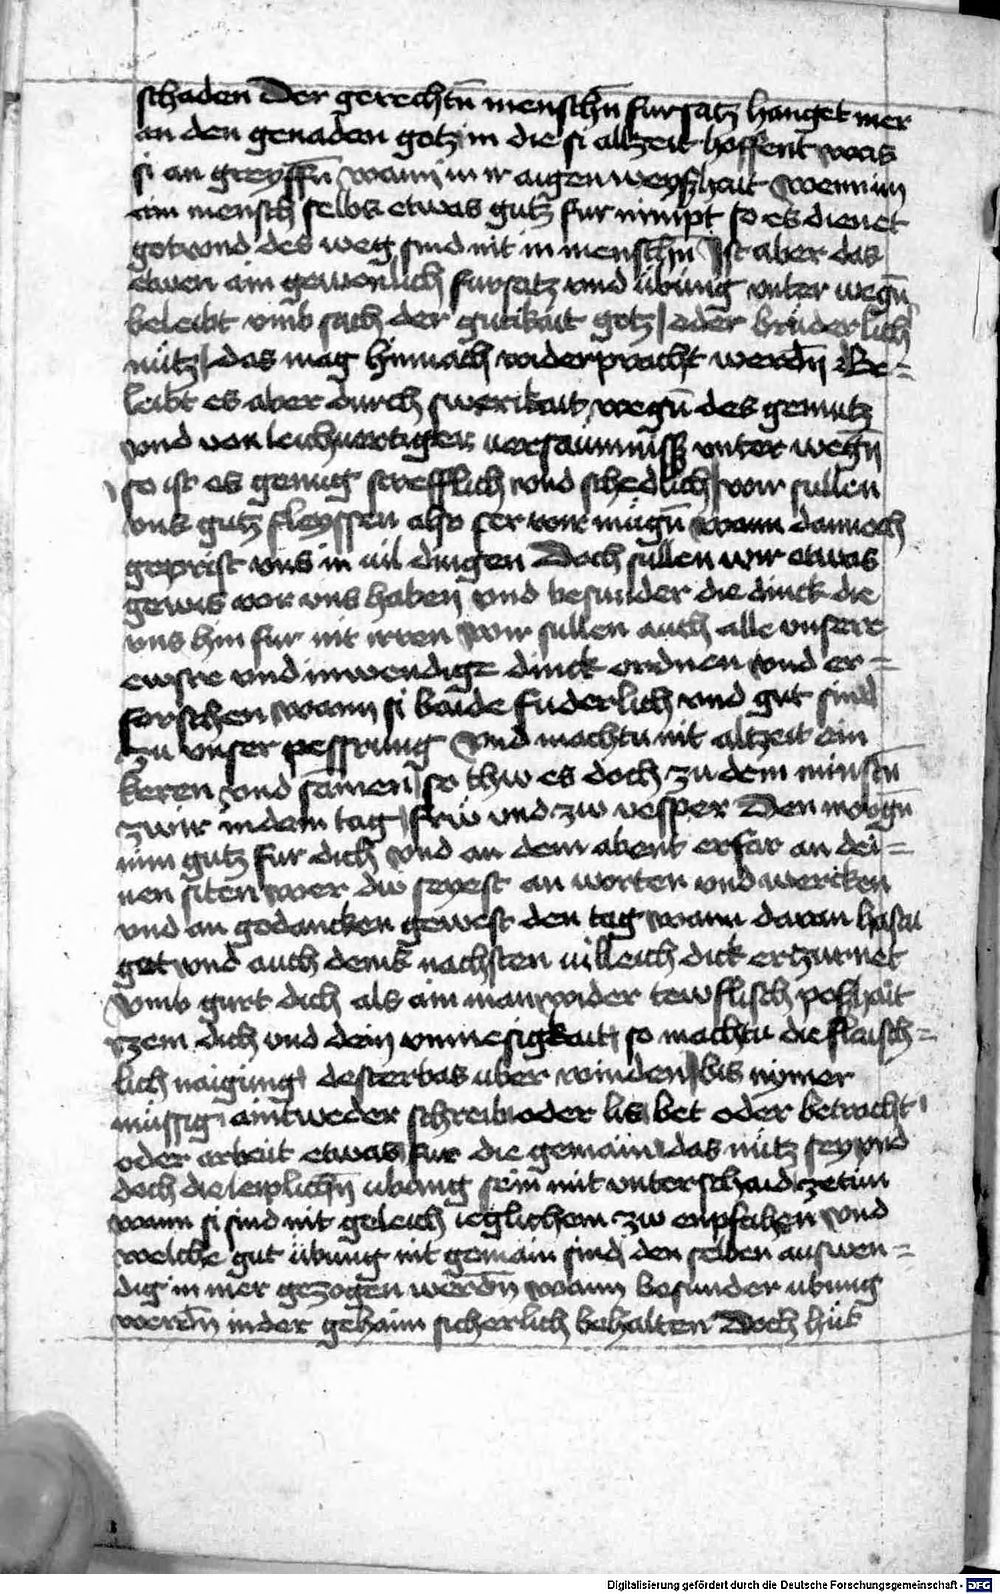 schaden Der gerechtn̄ menschn̄ fursatz hanget mer
an den genaden gotz in die si allzeit hoffent was
si an greyffn̄ wann in ir aigen weyßhait Wenn im
ain mensch selbs etwas gutz fur nimpt so es dienet
got vnd des weg sind nit in menschn̄ Ist aber das
etwen ain gewonlich fursatz vnd übung vnter wegn̄
beleibt vmb sach der gutikait gotz / oder bruderlich
nutz / das mag hinnach widerpracht werdn̄ Be=
leibt es aber durch swerikait wegn̄ des gemutz
vnd von leichuertiger uersaumnüß vnter wegn̄
so ist es genug strefflich vnd schedlich / wir sullen
vns gutz fleyssen also fer wir mügn̄ wann dannoch
geprist vns in uil dingen Doch sullen wir etwas
gewis vor vns haben vnd besunder die dinck die
vns hin fur nit irren Wir sullen auch alle vnsere
ewsre vnd inwendige dinck ordnen vnd er=
forschen wann si baide fuderlich vnd gut sind
zu vnser pessrung Vnd machtu nit altzeit ein
keren vnd samen / so thw es doch zu dem minstn̄
zwir in dem tag / frw vnd zw vesper Den morgn̄
nim gutz fur dich Vnd an dem abent erfar an dei=
nen siten wer dw seyest an worten vnd wercken
vnd an gedancken gewest den tag wann daran hastu
got vnd auch deins nachsten uilleich dick ertzurnet
Vmb gurt dich als ain man wider tewflisch poßhait
zem dich vnd dein vnmesigkait / so machtu die flaisch=
lich naigung desterbas uber winden / bis nymer
müssig aintweder schreib oder lis bet oder betracht
oder arbait etwas fur die gemain das nütz sey vnd
doch die leiplichn̄ ubung sein mit unterschaid zetun
wann si sind nit geleich ieglichem zw enpfahen Vnd
welche gut übung nit gemain sind den selben auswen=
dig nimer gezogen werdn̄ wann besunder ubung
werdn̄ in der gehaim sicherlich behalten Doch hüt